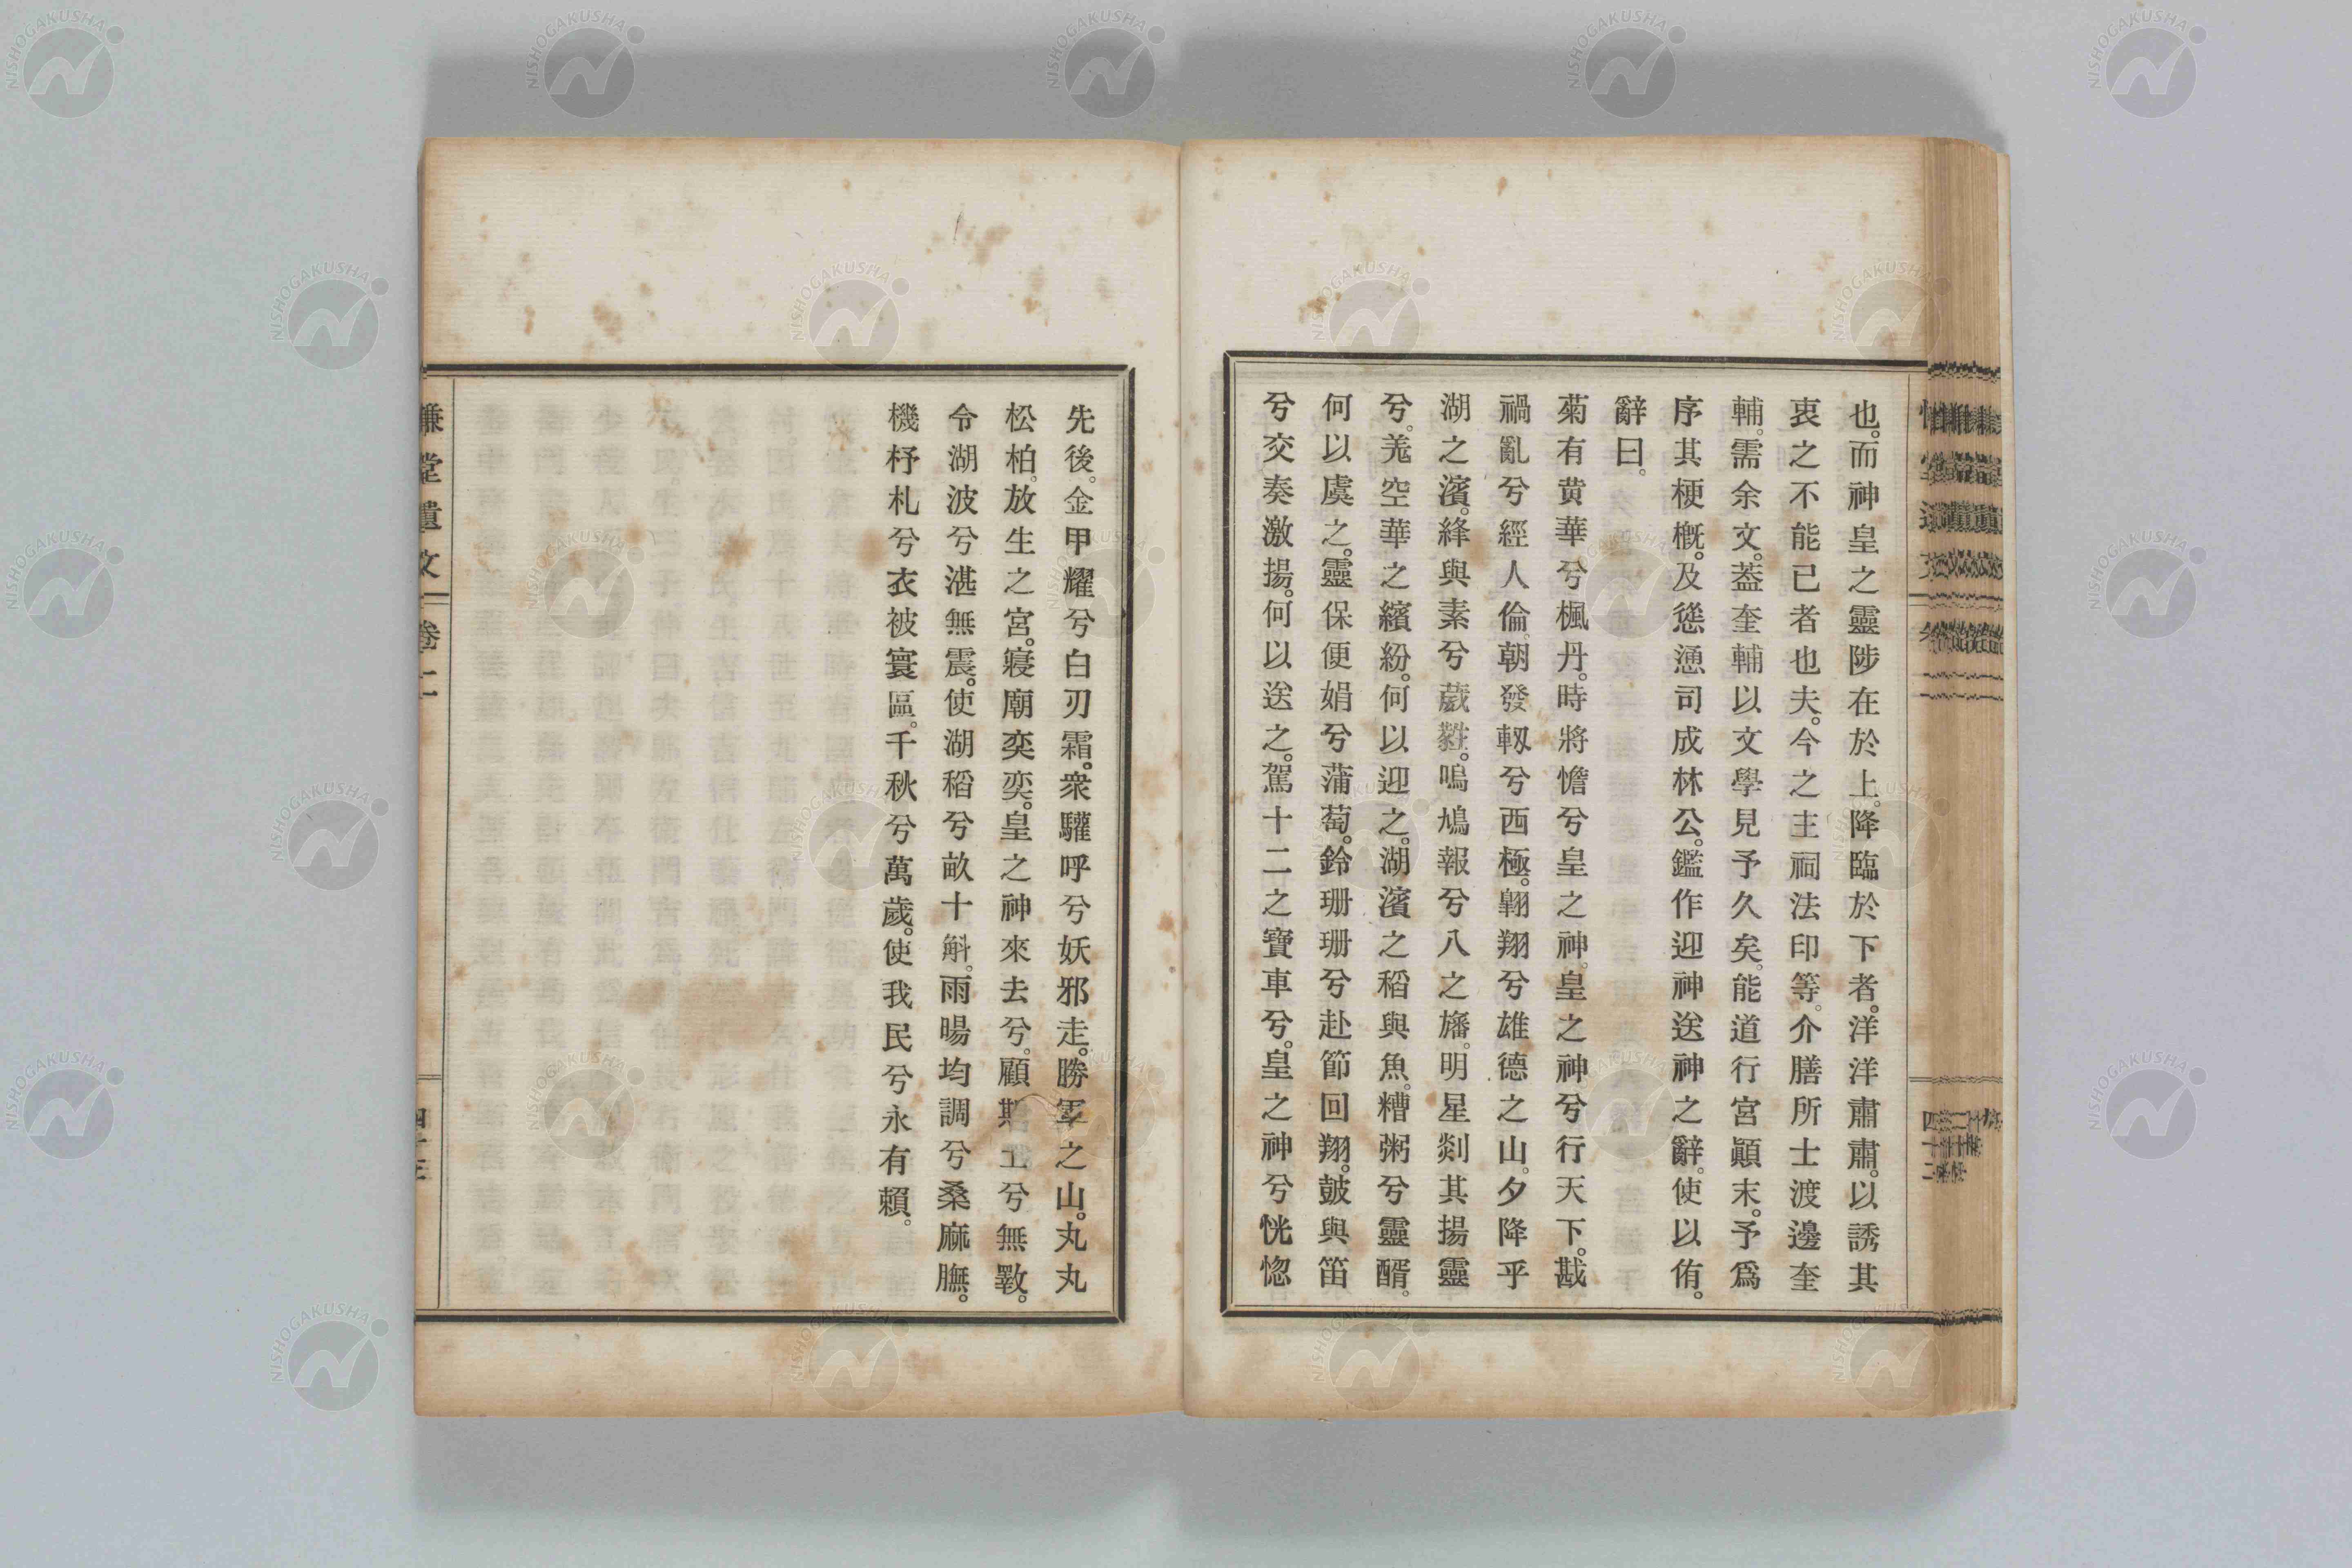 也。而神皇之靈陟在於上。降臨於下者。洋洋肅肅。以誘其
衷之不能已者也夫。今之主祠法印等。介膳所士渡邊奎
輔。需余文。蓋奎輔以文學見予久矣。能道行宮顚末。予爲
序其梗槪。及慫慂司成林公。鑑作迎神送神之辭。使以侑。
辭曰。
菊有黄華兮楓丹。時將憺兮皇之神。皇之神兮行天下。戡
禍亂兮經人倫。朝發軔兮西極。翺翔兮雄德之山。夕降乎
湖之濱。絳與素兮葳蕤。鳴鳩報兮八之旛。明星剡其揚靈
兮。羗空華之繽紛。何以迎之。湖濱之稻與魚。糟粥兮靈醑。
何以虞之。靈保便娟兮蒲萄。鈴珊珊兮赴節回翔。鼓與笛
兮交奏激揚。何以送之。駕十二之寶車兮。皇之神兮恍惚
先後。金甲耀兮白刃霜。衆驩呼兮妖邪走。勝軍之山。丸丸
松柏。放生之宮。寢廟奕奕。皇之神來去兮。顧斯土兮無斁。
令湖波兮湛無震。使湖稻兮畝十斛。雨暘均調兮桑麻膴。
機杼札兮衣被寰區。千秋兮萬歲。使我民兮永有賴。
慊堂遺文 卷二
四十三
四十二
NISHOGAKUSHA